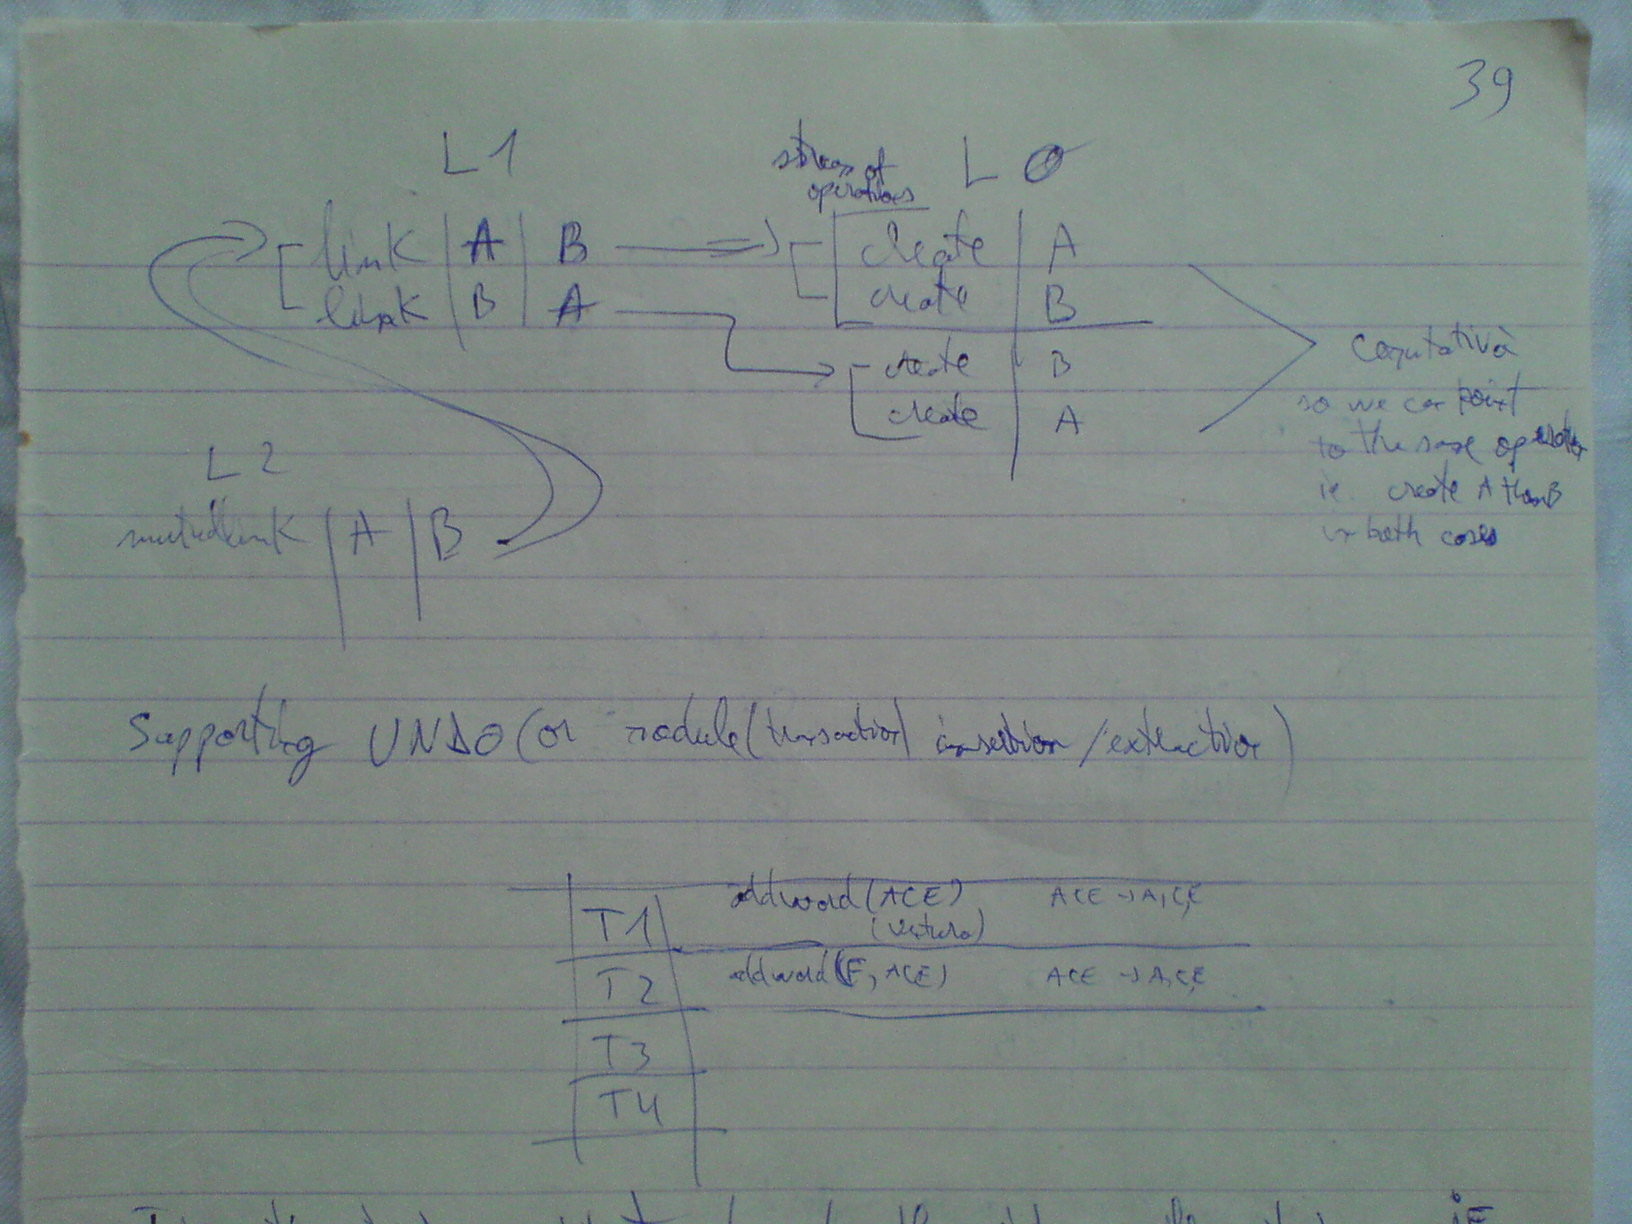 39
L 1
stream of
operations
L 0
link | A | B
create | A
link | B | A
create | B
create | B
create | A
Comutativa
so we can point
to the same operation
ie create A then B
in both cases
L 2
mutuallink | A | B
Supporting UNDO (or module (transaction) insertion / extraction)
T1 addword (ACE) ACE → A, C, E
T2 addword (E, ACE) ACE → A, C, E
T3
T4